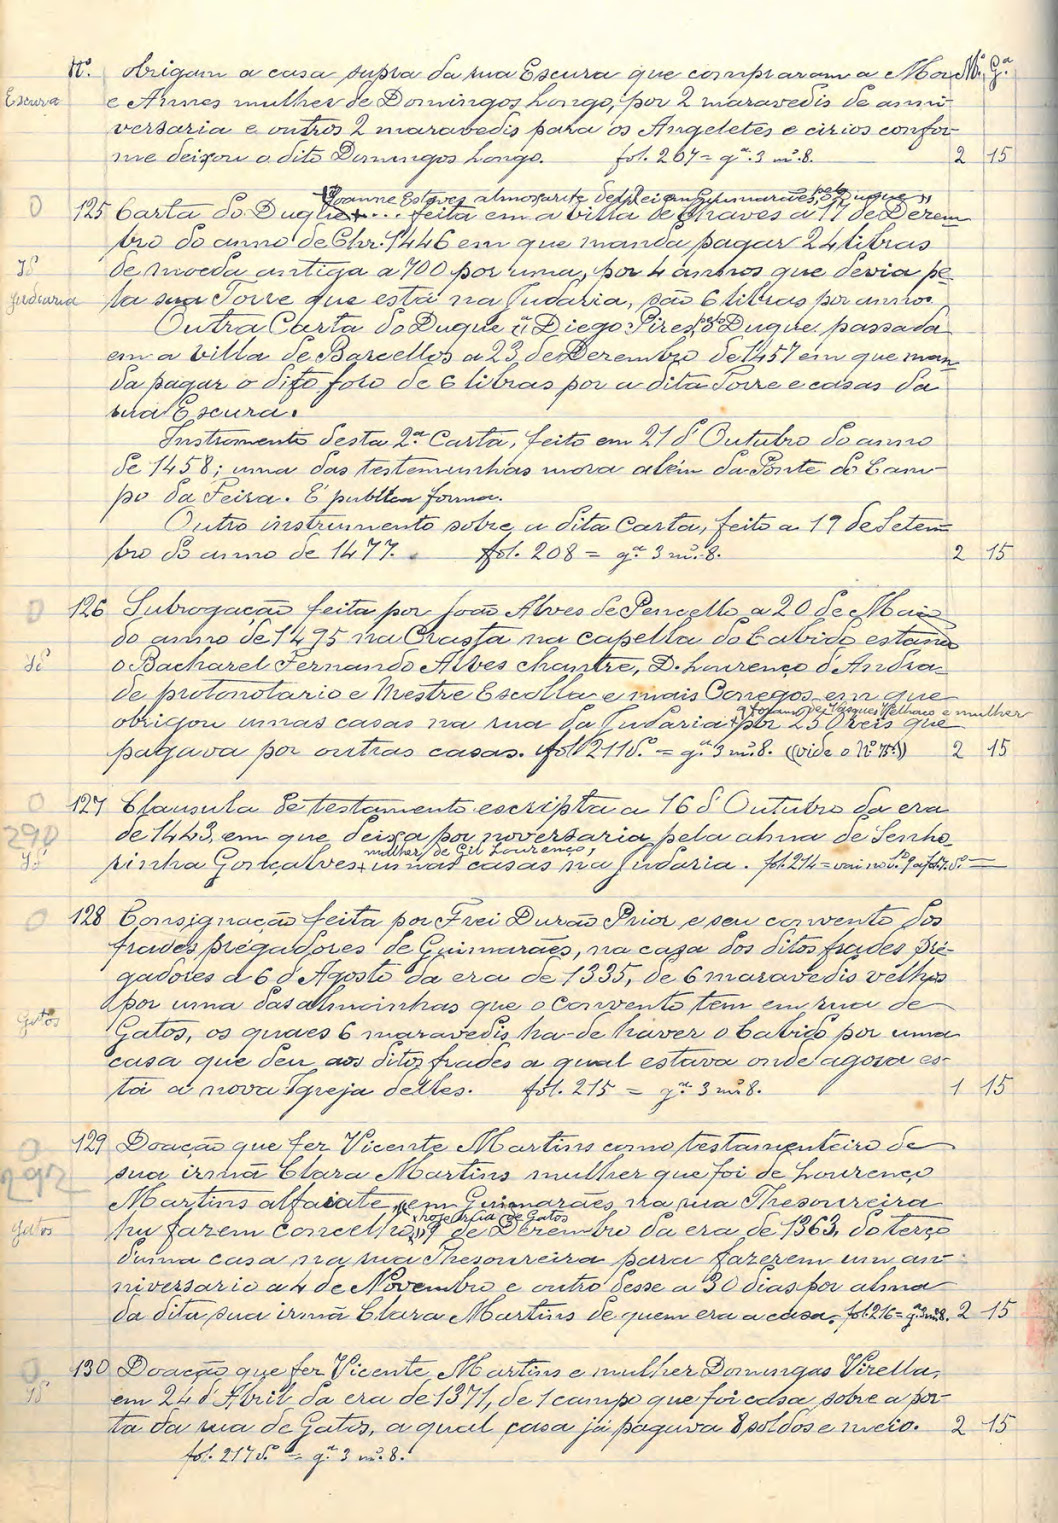 Nº. obrigam a casa supra da rua Escura que compraram a Mor Mº. Gª
Escura e Annes mulher de Domingos Longo, por 2 maravedis de anni-
versaria e outros 2 maravedis para os Angeletes e cirios confor-
me deixou o dito Domingos Longo. fol. 207 = gª. 3 mº. 8. 2 15
Joanne Esteves almoxarife delRei em Guimarães, pelo Duque
0 125 Carta do Duque ... feita em a villa de Chaves a 17 de Dezem-
bro do anno de Chr. 1446 em que manda pagar 24 libras
Sº de moeda antiga a 700 por uma, por 4 annos que devia pe-
Judiaria la sua Torre que está na Judaria, são 6 libras por anno.
Outra Carta do Duque a Diego Pires, pelo Duque, passada
em a villa de Barcellos a 23 de Dezembro de 1457 em que man-
da pagar o dito foro de 6 libras por a dita Torre e casas da
rua Escura.
Instromento desta 2ª. Carta, feito em 21 d'Outubro do anno
de 1458; uma das testemunhas mora além da Ponte do Cam-
po da Feira. É publica forma.
Outro instrumento sobre a dita Carta, feito a 19 de Setem-
bro do anno de 1477. fol. 208 = gª. 3 mº. 8. 2 15
0 126 Subrogação feita por João Alves de Pencello a 20 de Maio
do anno de 1495 na Crasta na capella do Cabido estando
Sº o Bacharel Fernando Alves chantre, D. Lourenço d'Andra-
de protonotario e Mestre Escolla e mais Conegos em que
q foram de Vasques Velhaco e mulher
obrigou umas casas na rua da Judaria por 250 reis que
pagava por outras casas. fol. 211 vº. = gª. 3 mº. 8. (vide o Nº.) 2 15
0 127 Clausula de testamento escripta a 16 d'Outubro da era
290 de 1443, em que deixa por noversaria pela alma de Senho-
mulher de Gil Lourenço,
Sº rinha Gonçalves umas casas na Judaria. fol. 214 =
0 128 Consignação feita por Frei Durão Prior e seu convento dos
frades prégadores de Guimarães, na casa dos ditos frades pré-
gadores a 6 d'Agosto da era de 1335, de 6 maravedis velhos
por uma das almoinhas que o convento tem em rua de
Gatos Gatos, os quaes 6 maravedis ha-de haver o Cabido por uma
casa que deu aos ditos frades a qual estava onde agora es-
tá a nova Igreja delles. fol. 215 = gª. 3 mº. 8. 1 15
0 129 Doação que fez Vicente Martins como testamenteiro de
292 sua irmã Clara Martins mulher que foi de Lourenço
Martins alfaiate, em Guimarães na rua Thesoureira
hoje a rua de Gatos
Gatos hu fazem concelho, 9 de Dezembro da era de 1363, do terço
duma casa na rua Thesoureira para fazerem um an-
niversario a 4 de Novembro e outro desse a 30 dias por alma
da dita sua irmã Clara Martins de quem era a casa. fol. 216 = gª. 3 mº. 8. 2 15
0 130 Doação que fez Vicente Martins e mulher Domingas Virella,
Sº em 24 d'Abril da era de 1371, de 1 campo que foi casa sobre a por-
ta da rua de Gatos, a qual casa já pagava 8 soldos e meio. 2 15
fol. 217 vº. = gª. 3 mº. 8.